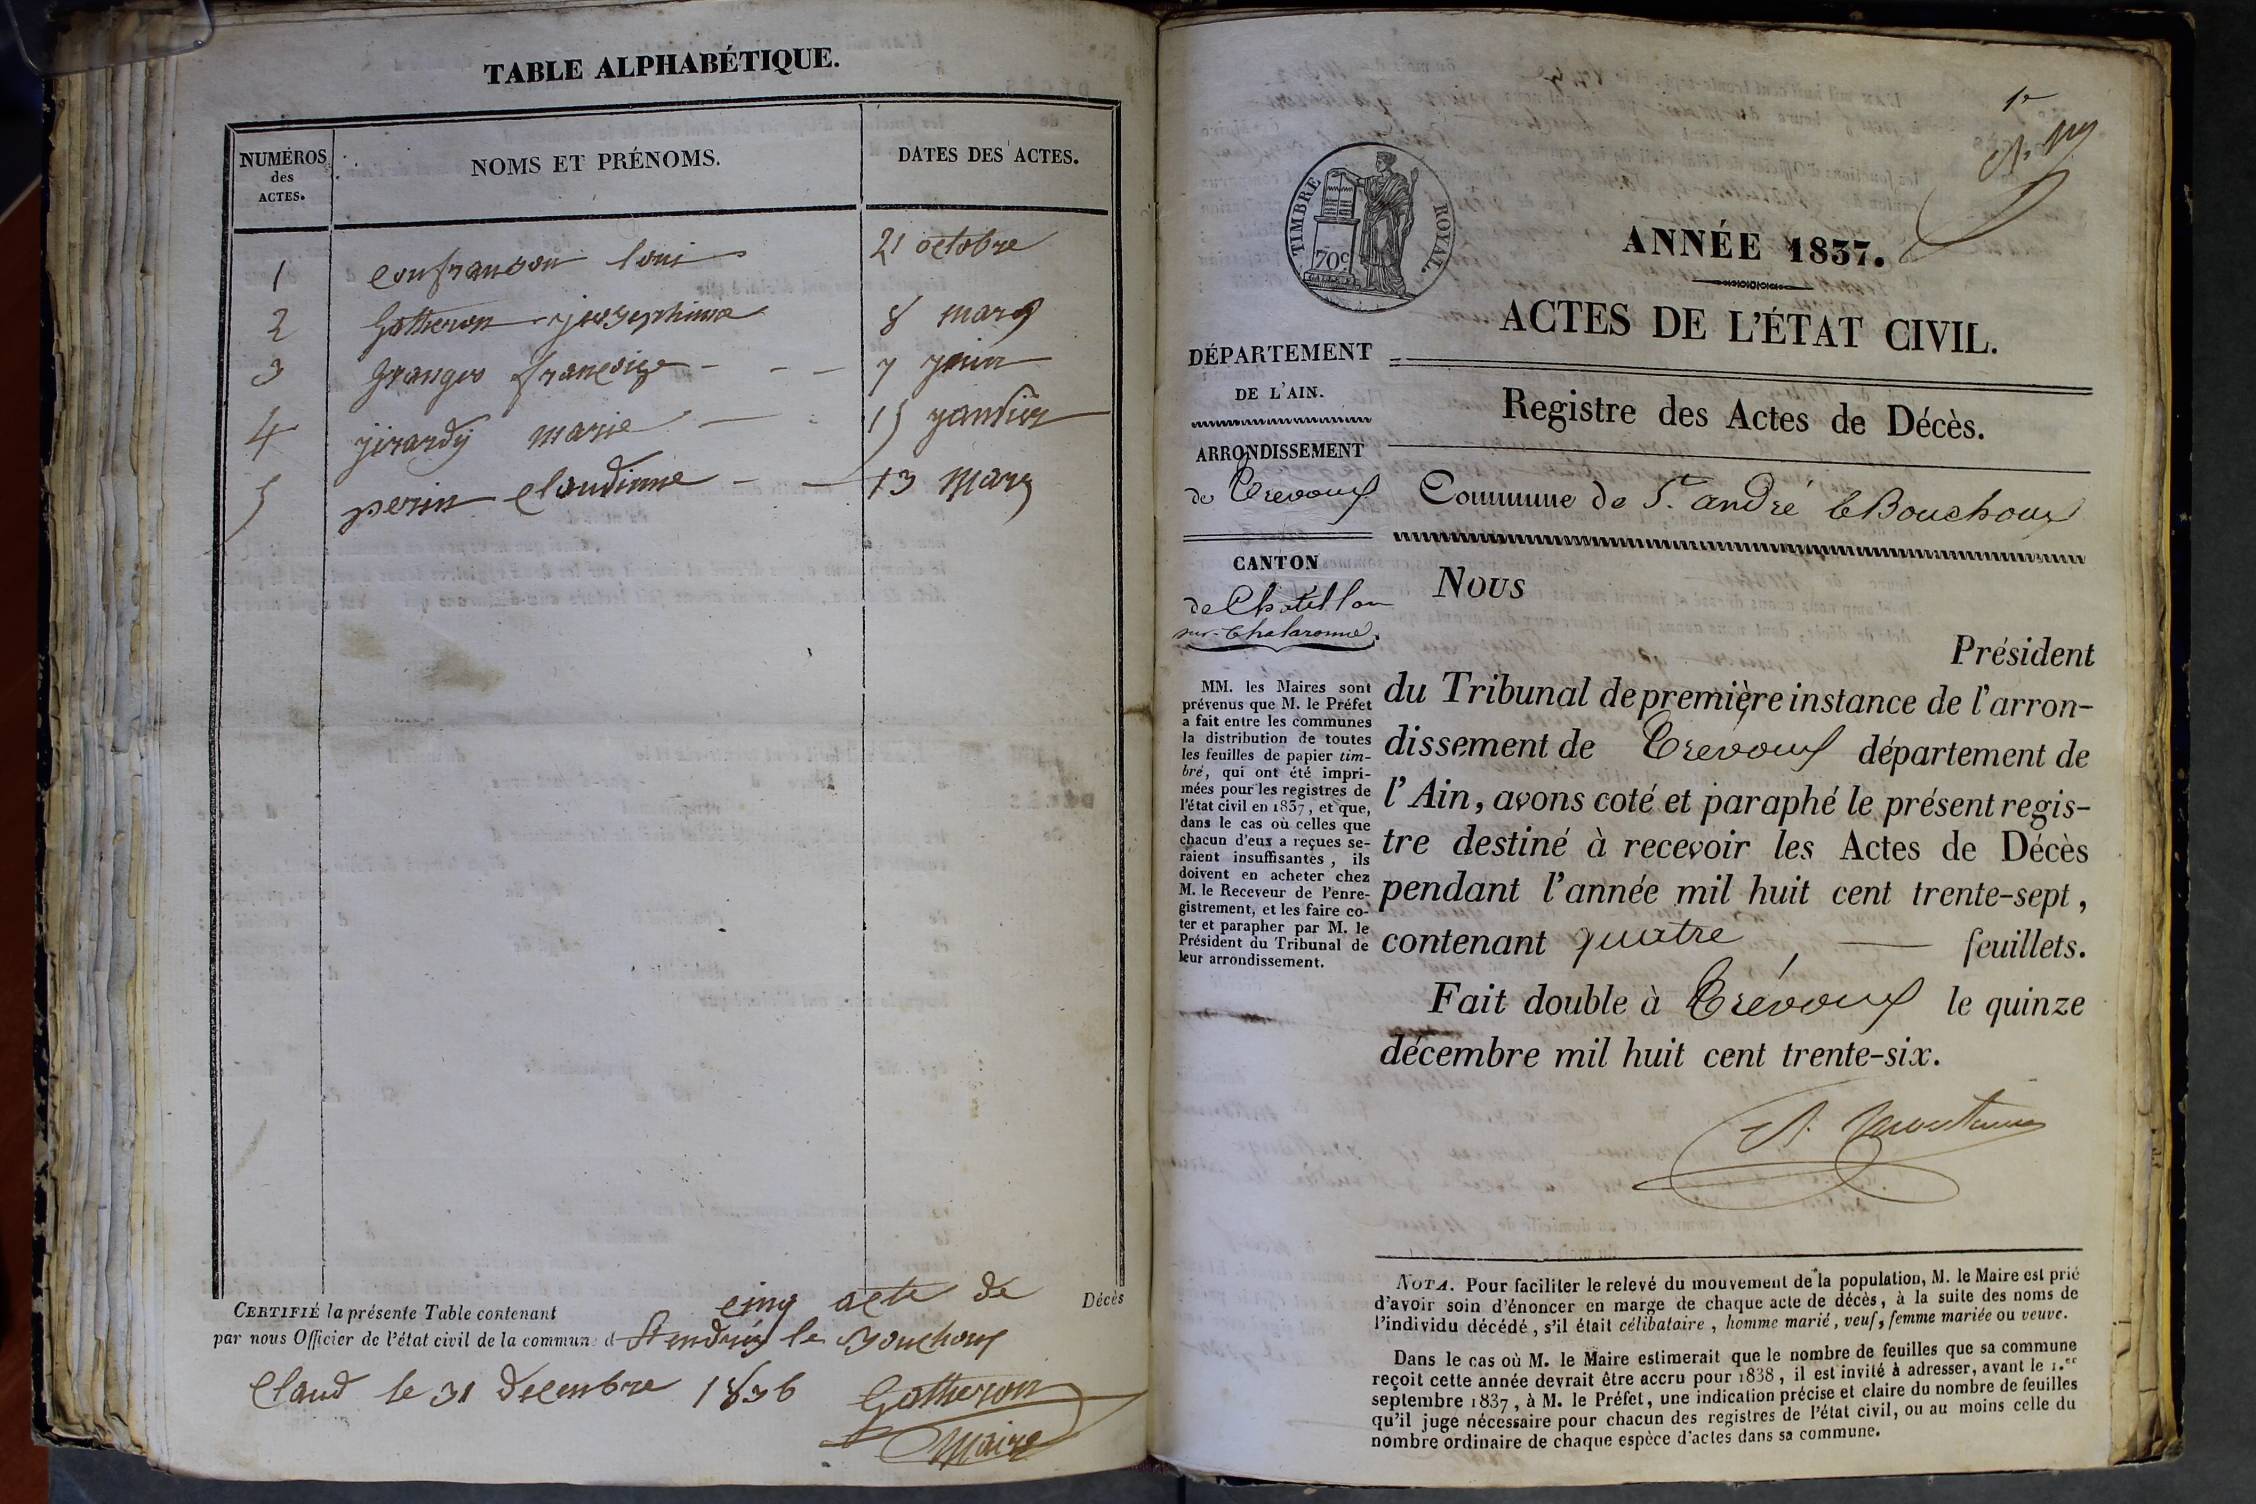 TABLE ALPHABÉTIQUE.
NUMÉROS
des
ACTES.
NOMS ET PRÉNOMS.
DATES DES ACTES.
1 confranson loui 21 octobre
2 Gotheron josephinne 8 mars
3 granges françoise - - - 7 juin
4 jirardy marie - - 15 janvier
5 perin claudinne - - 13 mars
CERTIFIÉ la présente Table contenant cinq acte de Décès
par nous Officier de l'état civil de la commune d St andréy le Bouchoux
Claud le 31 decembre 1836 Gotheron
Maire
1er
TIMBRE ROYAL.
70c
ANNÉE 1837.
ACTES DE L'ÉTAT CIVIL.
Registre des Actes de Décès.
Commune de St. andré le Bouchoux
DÉPARTEMENT
DE L'AIN.
ARRONDISSEMENT
de Trevoux
CANTON
de Chatillon
sur-Chalaronne.
MM. les Maires sont
prévenus que M. le Préfet
a fait entre les communes
la distribution de toutes
les feuilles de papier tim-
bré, qui ont été impri-
mées pour les registres de
l'état civil en 1837, et que,
dans le cas où celles que
chacun d'eux a reçues se-
raient insuffisantes, ils
doivent en acheter chez
M. le Receveur de l'enre-
gistrement, et les faire co-
ter et parapher par M. le
Président du Tribunal de
leur arrondissement.
Nous
Président
du Tribunal de première instance de l'arron-
dissement de Trévoux département de
l'Ain, avons coté et paraphé le présent regis-
tre destiné à recevoir les Actes de Décès
pendant l'année mil huit cent trente-sept,
contenant quatre feuillets.
Fait double à Trévoux le quinze
décembre mil huit cent trente-six.
NOTA. Pour faciliter le relevé du mouvement de la population, M. le Maire est prié
d'avoir soin d'énoncer en marge de chaque acte de décès, à la suite des noms de
l'individu décédé, s'il était célibataire, homme marié, veuf, femme mariée ou veuve.
Dans le cas où M. le Maire estimerait que le nombre de feuilles que sa commune
reçoit cette année devrait être accru pour 1838, il est invité à adresser, avant le 1.er
septembre 1837, à M. le Préfet, une indication précise et claire du nombre de feuilles
qu'il juge nécessaire pour chacun des registres de l'état civil, ou au moins celle du
nombre ordinaire de chaque espèce d'actes dans sa commune.